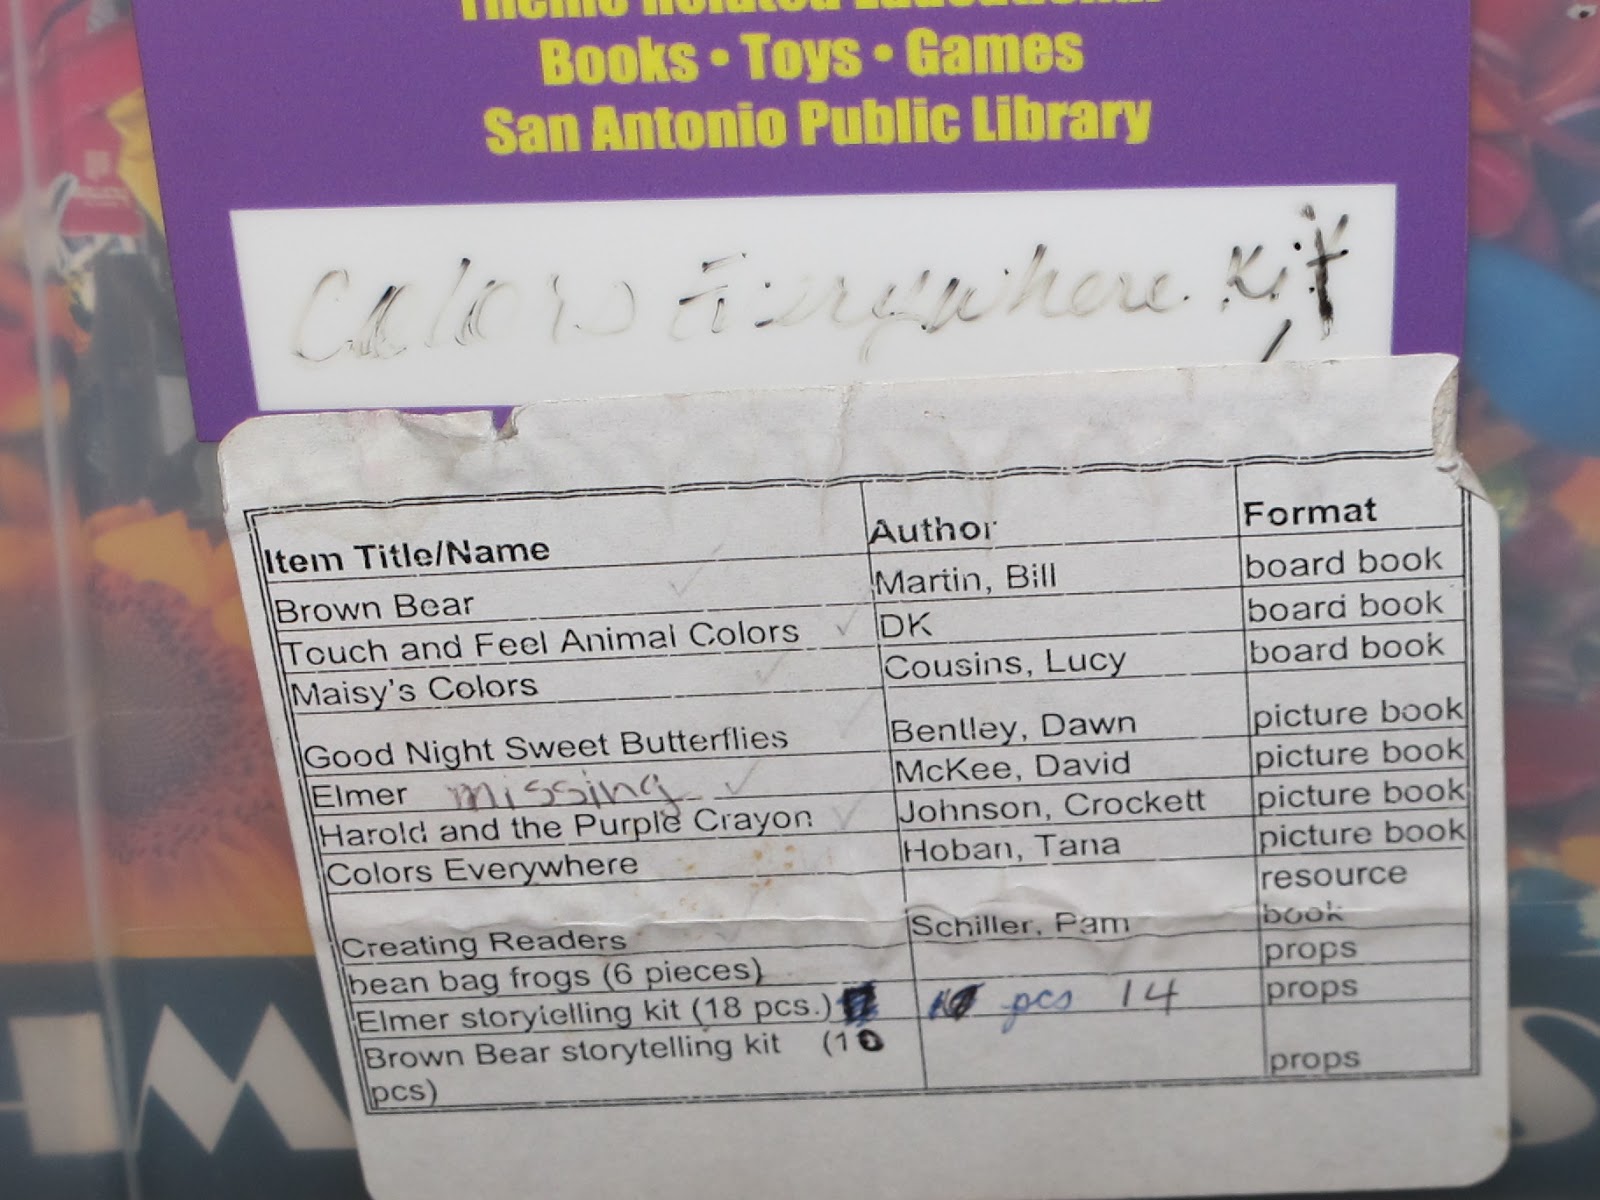 Theme Related Educational
Books • Toys • Games
San Antonio Public Library
Colors Everywhere Kit
Item Title/Name Author Format
Brown Bear Martin, Bill board book
Touch and Feel Animal Colors DK board book
Maisy's Colors Cousins, Lucy board book
Good Night Sweet Butterflies Bentley, Dawn picture book
Elmer missing McKee, David picture book
Harold and the Purple Crayon Johnson, Crockett picture book
Colors Everywhere Hoban, Tana picture book
Creating Readers Schiller, Pam resource book
bean bag frogs (6 pieces) props
Elmer storytelling kit (18 pcs.) pcs 14 props
Brown Bear storytelling kit (10 props
pcs)